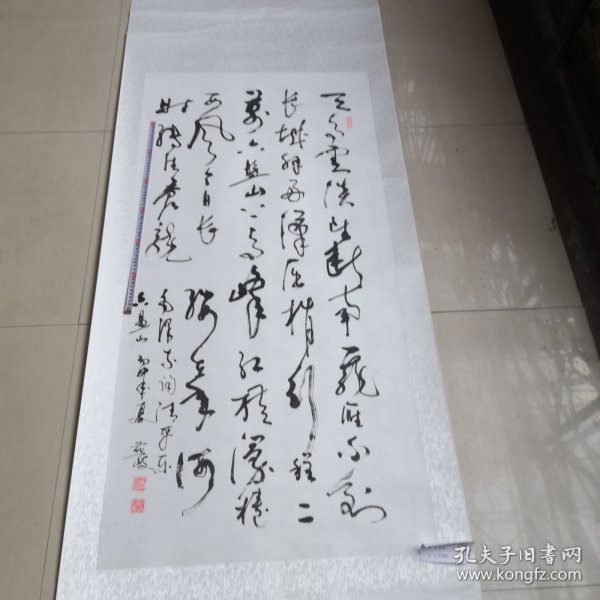 天高雲淡望断南飛雁不到
长城非好漢屈指行程二
萬六盤山上高峰红旗漫捲
西風今日长缨在手何
时缚住苍龍
毛泽东词清平乐
六盘山 丙申年夏
孔夫子旧书网
www.kongfz.com